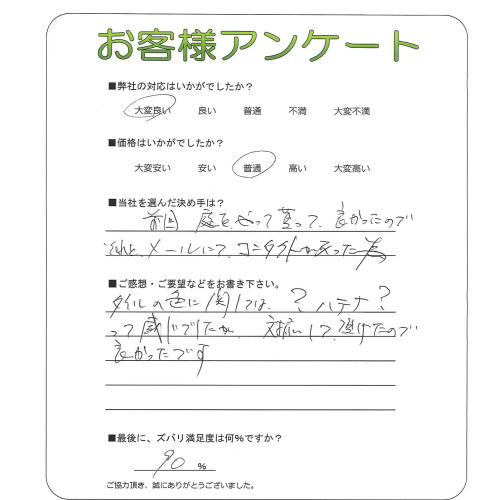 お客様アンケート
■弊社の対応はいかがでしたか？
大変良い 良い 普通 不満 大変不満
■価格はいかがでしたか？
大変安い 安い 普通 高い 大変高い
■当社を選んだ決め手は？
前回 庭をやって貰って、良かったので
それと、メールにて、コンタクトが取れた為
■ご感想・ご要望などをお書き下さい。
タイルの色に関しては、？ ハテナ？
って感じでしたが、対応して頂けたので
良かったです
■最後に、ズバリ満足度は何％ですか？
90 ％
ご協力頂き、誠にありがとうございました。